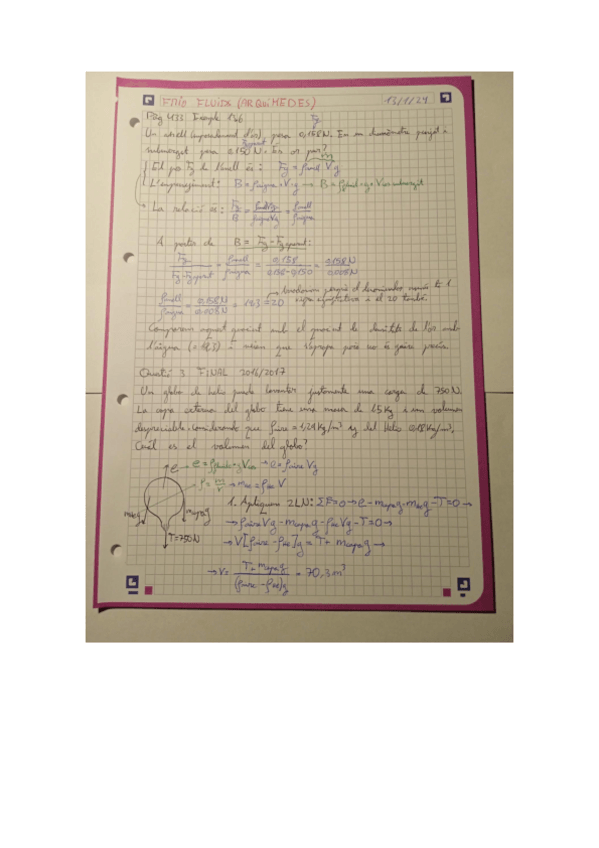 FMIO FLUIDS (ARQUIMEDES) 13/1/24
Pàg 433 Exemple 13.6 Fg
Un anell (aparentment d'or), pesa 0,158N. En un dinamòmetre penjat i
submergit pesa 0.150 N. És or pur?
Fgaparent
El pes Fg de l'anell és: Fg = ρanell V·g
L'empenyiment: B = ρaigua·V·g → B = ρfluid·g·Vsubmergit
→ La relació és: Fg/B = ρanell Vg/ρaigua Vg = ρanell/ρaigua
A partir de B = Fg - Fg aparent:
Fg/(Fg-Fg aparent) = ρanell/ρaigua = 0.158/(0.158-0.150) = 0.158N/0.008N
ρanell/ρaigua = 0.158N/0.008N = 19.3 = 20 → perquè el denominador només té 1
xifra significativa i el 20 també.
Comparem aquest quocient amb el quocient de densitats de l'or amb
l'aigua (= 19,3) i veiem que s'apropa però no és gaire precís.
Qüestió 3 FINAL 2016/2017
Un globo de helio puede levantar justamente una carga de 750 N.
La capa externa del globo tiene una masa de 1.5 Kg i un volumen
despreciable. Considerando que ρaire = 1,21 Kg/m³ y del Helio 0.18 Kg/m³,
Cuál es el volumen del globo?
e → e = ρfluido·g Vsub → e = ρaire Vg
ρ = m/V → mHe = ρHe V
1. Apliquem 2LN: ΣF=0 → e - mcapa g - mHe g - T = 0 →
mHe g mcapa g
→ ρaire Vg - mcapa g - ρHe Vg - T = 0 →
T=750N
→ V[ρaire - ρHe]g = T + mcapa g →
→ V = (T + mcapa g)/((ρaire - ρHe)g) = 70,3 m³